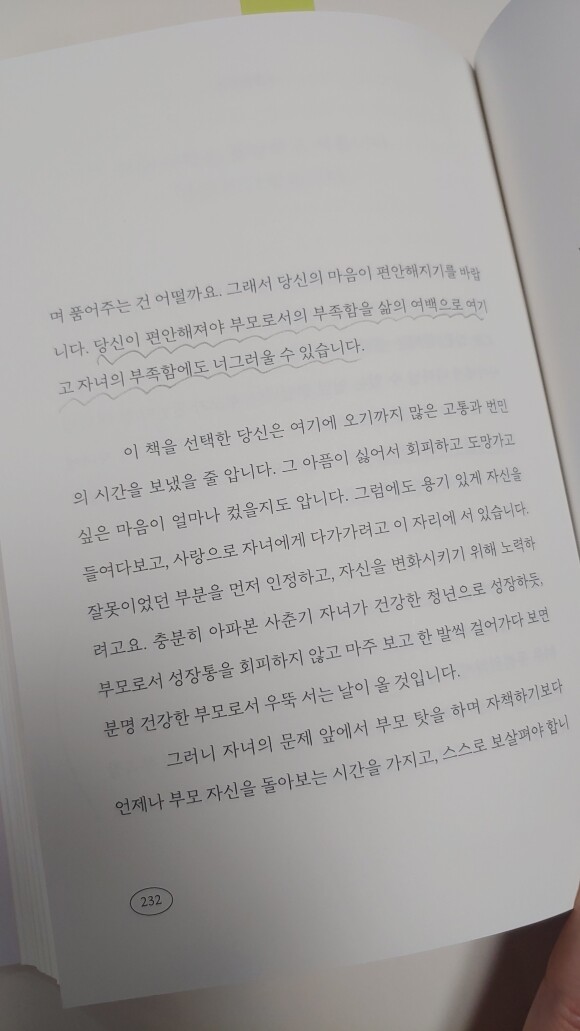 며 품어주는 건 어떨까요. 그래서 당신의 마음이 편안해지기를 바랍
니다. 당신이 편안해져야 부모로서의 부족함을 삶의 여백으로 여기
고 자녀의 부족함에도 너그러울 수 있습니다.
이 책을 선택한 당신은 여기에 오기까지 많은 고통과 번민
의 시간을 보냈을 줄 압니다. 그 아픔이 싫어서 회피하고 도망가고
싶은 마음이 얼마나 컸을지도 압니다. 그럼에도 용기 있게 자신을
들여다보고, 사랑으로 자녀에게 다가가려고 이 자리에 서 있습니다.
잘못이었던 부분을 먼저 인정하고, 자신을 변화시키기 위해 노력하
려고요. 충분히 아파본 사춘기 자녀가 건강한 청년으로 성장하듯,
부모로서 성장통을 회피하지 않고 마주 보고 한 발씩 걸어가다 보면
분명 건강한 부모로서 우뚝 서는 날이 올 것입니다.
그러니 자녀의 문제 앞에서 부모 탓을 하며 자책하기보다
언제나 부모 자신을 돌아보는 시간을 가지고, 스스로 보살펴야 합니
232